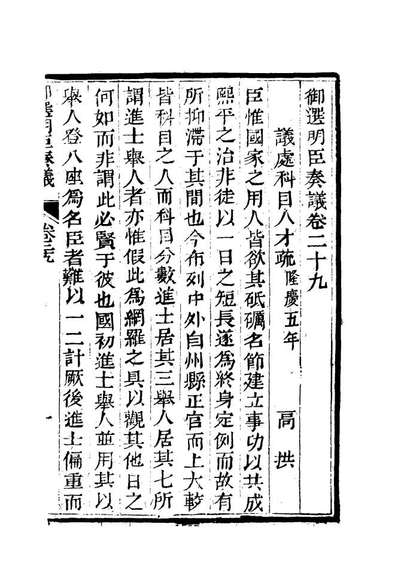 御選明臣奏議卷二十九
議處科目人才疏隆慶五年　高拱
臣惟國家之用人皆欲其砥礪名節建立事功以共成
熙平之治非徒以一日之短長遂為終身定例而故有
所抑滯于其間也今布列中外自州縣正官而上大較
皆科目之人而科目分數進士居其三舉人居其七所
謂進士舉人者亦惟假此為網羅之具以觀其他日之
何如而非謂此必賢于彼也國初進士舉人並用其以
舉人登八座為名臣者難以一二計厥後進士偏重而
御選明臣奏議　卷二十九　一